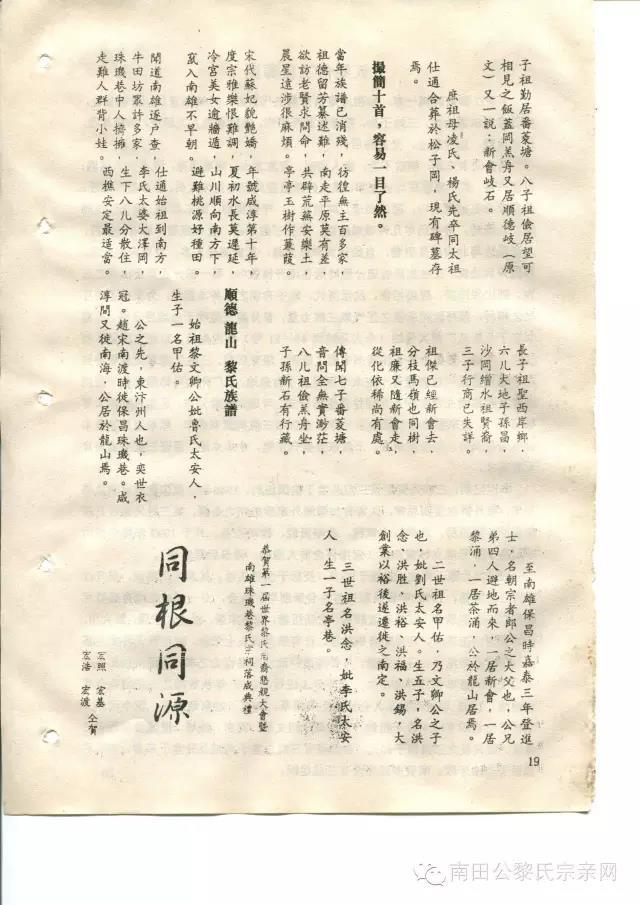 子祖勤居番蔆塘。八子祖儉居望可
相見之飯蓋岡羔舟又居順德岐(原
文)又一說:新會岐石。
庶祖母凌氏、楊氏先卒同太祖
仕通合葬於松子岡,現有碑墓存
焉。
撮簡十首,容易一目了然。
當年族譜已消殘,彷徨無主百多家,
祖德留芳纂述難,南走平原莫有差,
欲訪老賢求問命,共辟荒蕪安樂土,
晨星遠涉很麻煩。亭亭玉樹作蒹葭。
宋代蘇妃貌艷嬌,年號咸淳第十年,
度宗雅樂恨難調,夏初水長莫遲延,
冷宮美女逾牆遁,山川順向南方下,
竄入南雄不早朝。避難桃源好種田。
聞道南雄逐户查,仕通始祖到南方,
牛田坊眾許多家,李氏太婆大澤岡,
珠璣巷中人擠擁,生下八儿分散住,
走難人群背小娃。西樵安定最適當。
長子祖聖西岸鄉,
六儿大地子孫昌,
沙岡繒水祖賢裔,
三子行商已失詳。
祖傑已經新會去,
分枝馬嶺也同樹,
祖廉又隨新會走,
從化依稀尚有處。
傳聞七子番蔆塘,
音問全無實渺茫,
八儿祖儉羔舟坐,
子孫新石有行藏。
順德龍山 黎氏族譜
始祖黎文卿公妣魯氏太安人,
生子一名甲佑。
公之先,東汴州人也,奕世衣
冠。趙宋南渡時徙保昌珠璣巷。咸
淳間又徙南海,公居於龍山焉。
至南雄保昌時嘉泰三年登進
士,名朝宗者郎公之大父也,公兄
弟四人避地而來,一居新會,一居
黎涌,一居茶涌,公於龍山居焉。
二世祖名甲佑,乃文卿公之子
也,妣劉氏太安人。生五子,名洪
念、洪胜、洪裕、洪福、洪錫,大
創業以裕後遂遷徙之南定。
三世祖名洪念,妣李氏太安
人,生一子名亭巷。
恭賀第一屆世界黎氏宗裔懇親大會暨
南雄珠璣巷黎氏宗祠落成典禮
同根同源
宏照 宏基
宏浩 宏渡 仝賀
19
南田公黎氏宗亲网